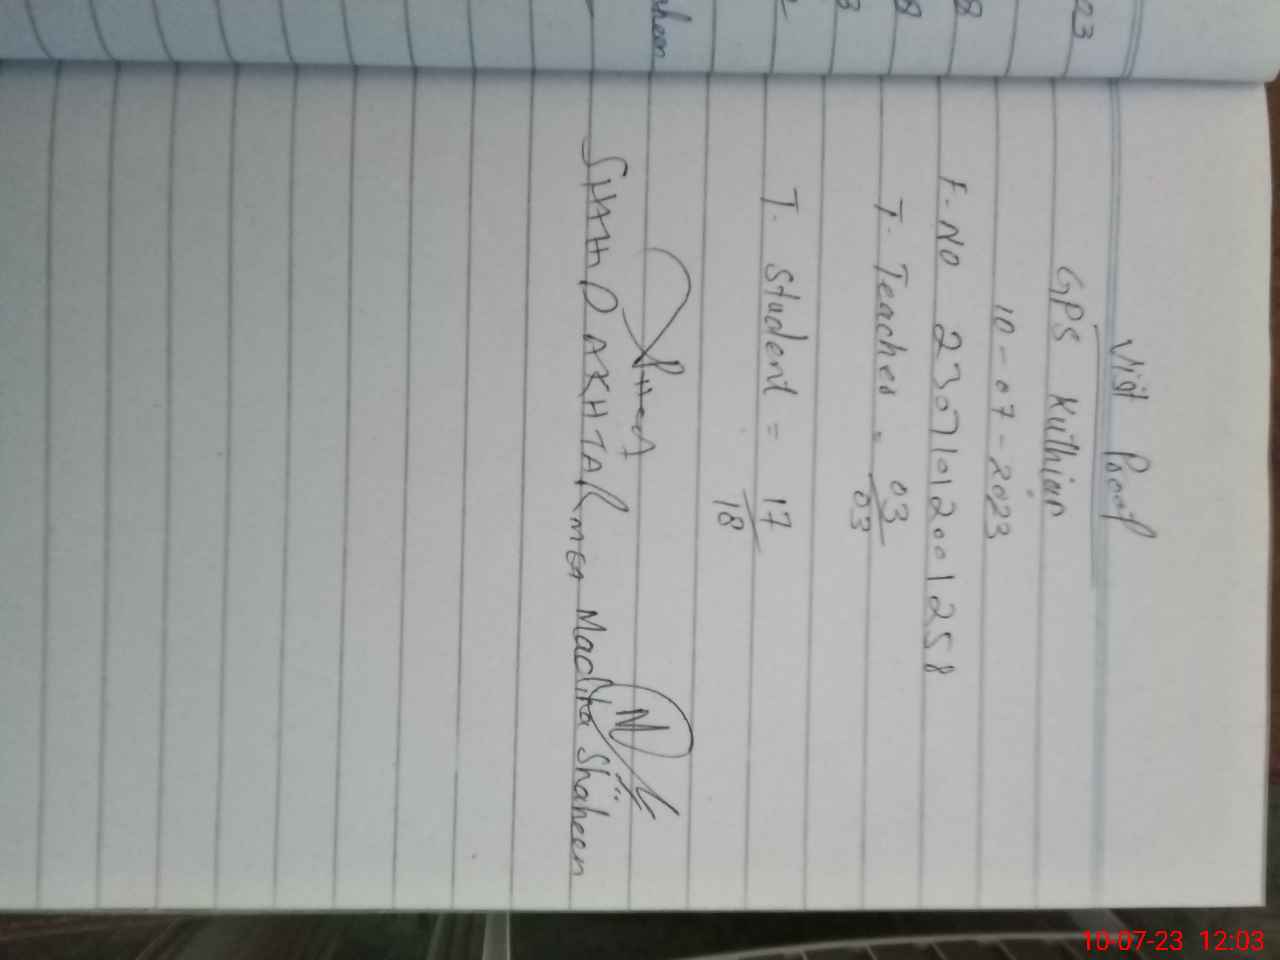 23
8
8
3
Visit Proof
GPS Kuthian
10-07-2023
F.NO 23071012001258
T. Teaches = 03
03
T. Student = 17
18
SHAHID AKHTAR MEA Madiha Shaheen
10-07-23 12:03